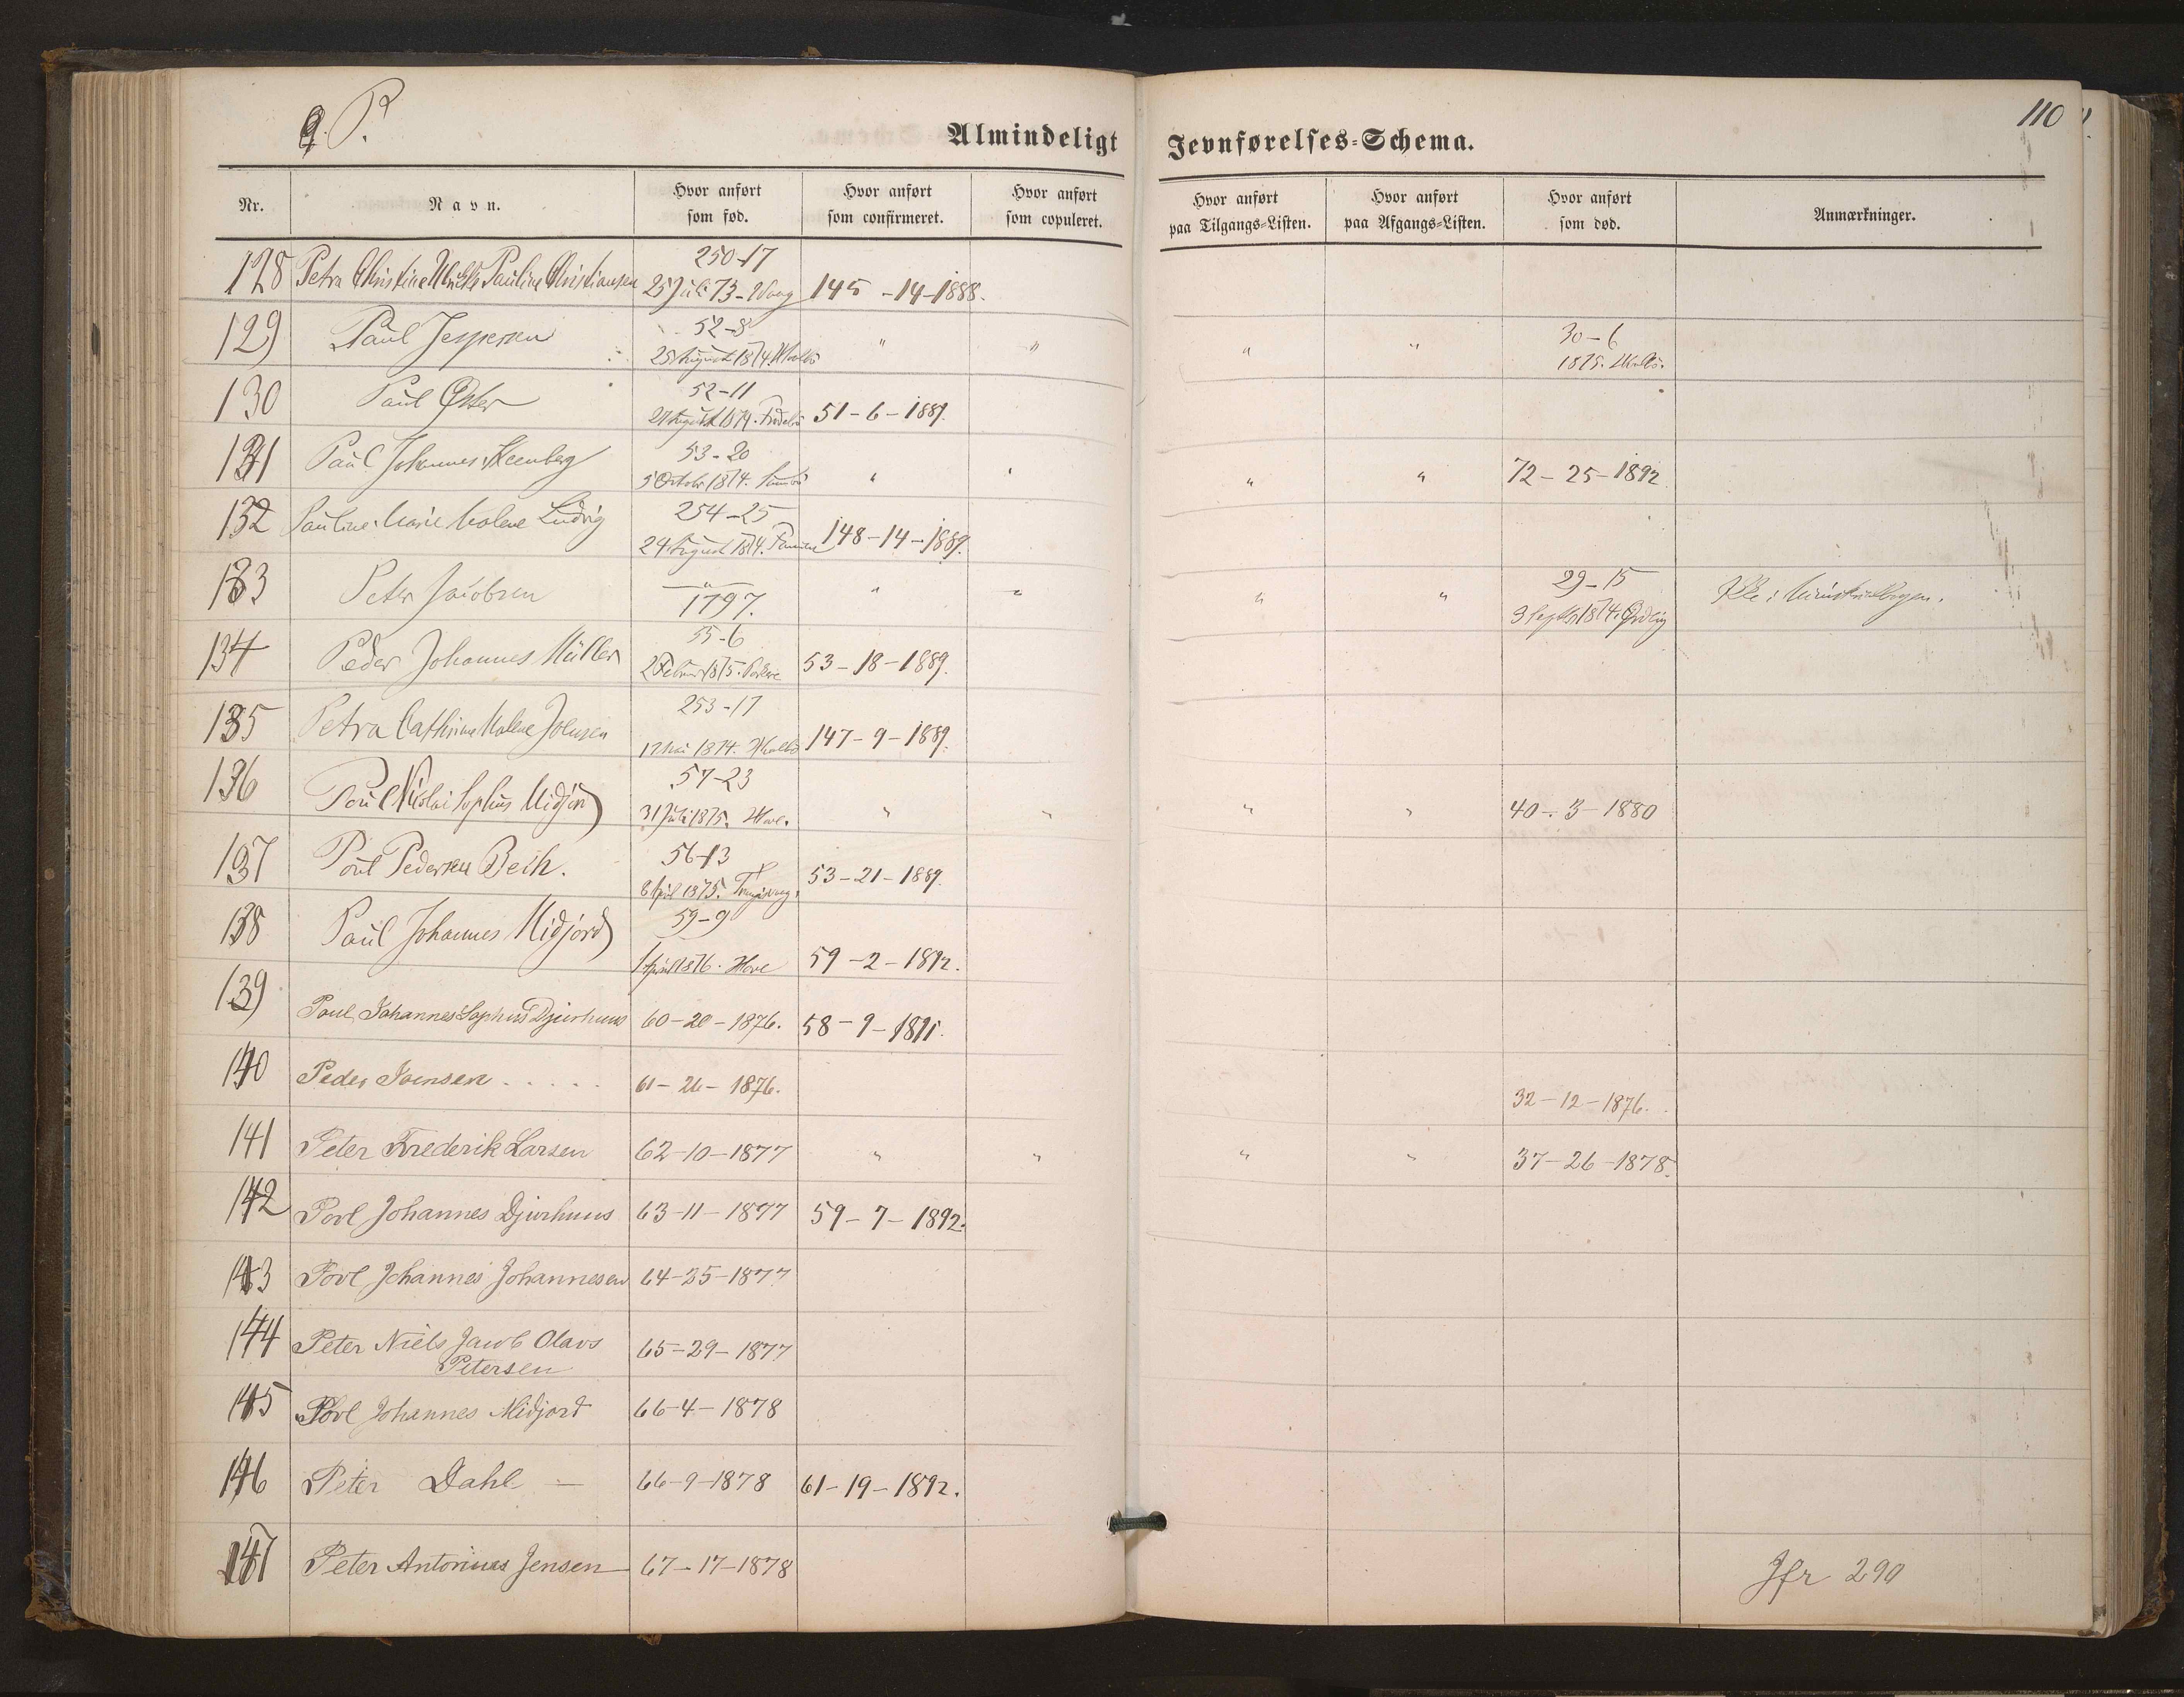 9. P.
110
Almindeligt Jevnførelses-Schema.
Nr. Navn. Hvor anført som fød. Hvor anført som confirmeret. Hvor anført som copuleret. Hvor anført paa Tilgangs-Listen. Hvor anført paa Afgangs-Listen. Hvor anført som død. Anmærkninger.
250-17
128 Petra Christine Pauline Christiansen 25 Juli 73 - Waag 145 - 14 - 1888.
52-8 30-6
129 Paul Jespersen 25 August 1874. Hvalbö " " " " 1875. Hvalbö.
52-11
130 Paul Øster August 1874. 51-6-1889.
53-20
131 Paul Johannes 5 October 1874. Sumbö " " " " 72-25-1892
254-25
132 Pauline Marie Malene Ludvig 24 August 1874. 148-14-1889.
" 29-15
133 Peter Jacobsen 1797. " " " " 3 Septbr 1874. Ikke i Ministerialbogen.
55-6
134 Peder Johannes Müller 2 Februar 1875. Porkere 53-18-1889.
253-17
135 Petra Cathrine Malene Joensen 17 Mai 1874. Hvalbö 147-9-1889.
57-23
136 Poul Nicolai Sophus Midjord 31 Juli 1875. Hove. " " " " 40-3-1880
56-13
137 Poul Pedersen Bech. 8 April 1875. 53-21-1889.
59-9
138 Paul Johannes Midjord 1 April 1876. Hove 59-2-1892.
139 Poul Johannes Sophus Djurhuus 60-20-1876. 58-9-1891.
140 Peder Joensen . . . . . 61-26-1876. 32-12-1876.
141 Peter Frederik Larsen 62-10-1877 " " " " 37-26-1878.
142 Povl Johannes Djurhuus 63-11-1877 59-7-1892.
143 Povl Johannes Johannesen 64-25-1877
144 Peter Niels Jacob Olavs 65-29-1877
Petersen
145 Povl Johannes Midjord 66-4-1878
146 Peter Dahl - 66-9-1878 61-19-1892.
147 Peter Antonius Jensen 67-17-1878 Jfr 290